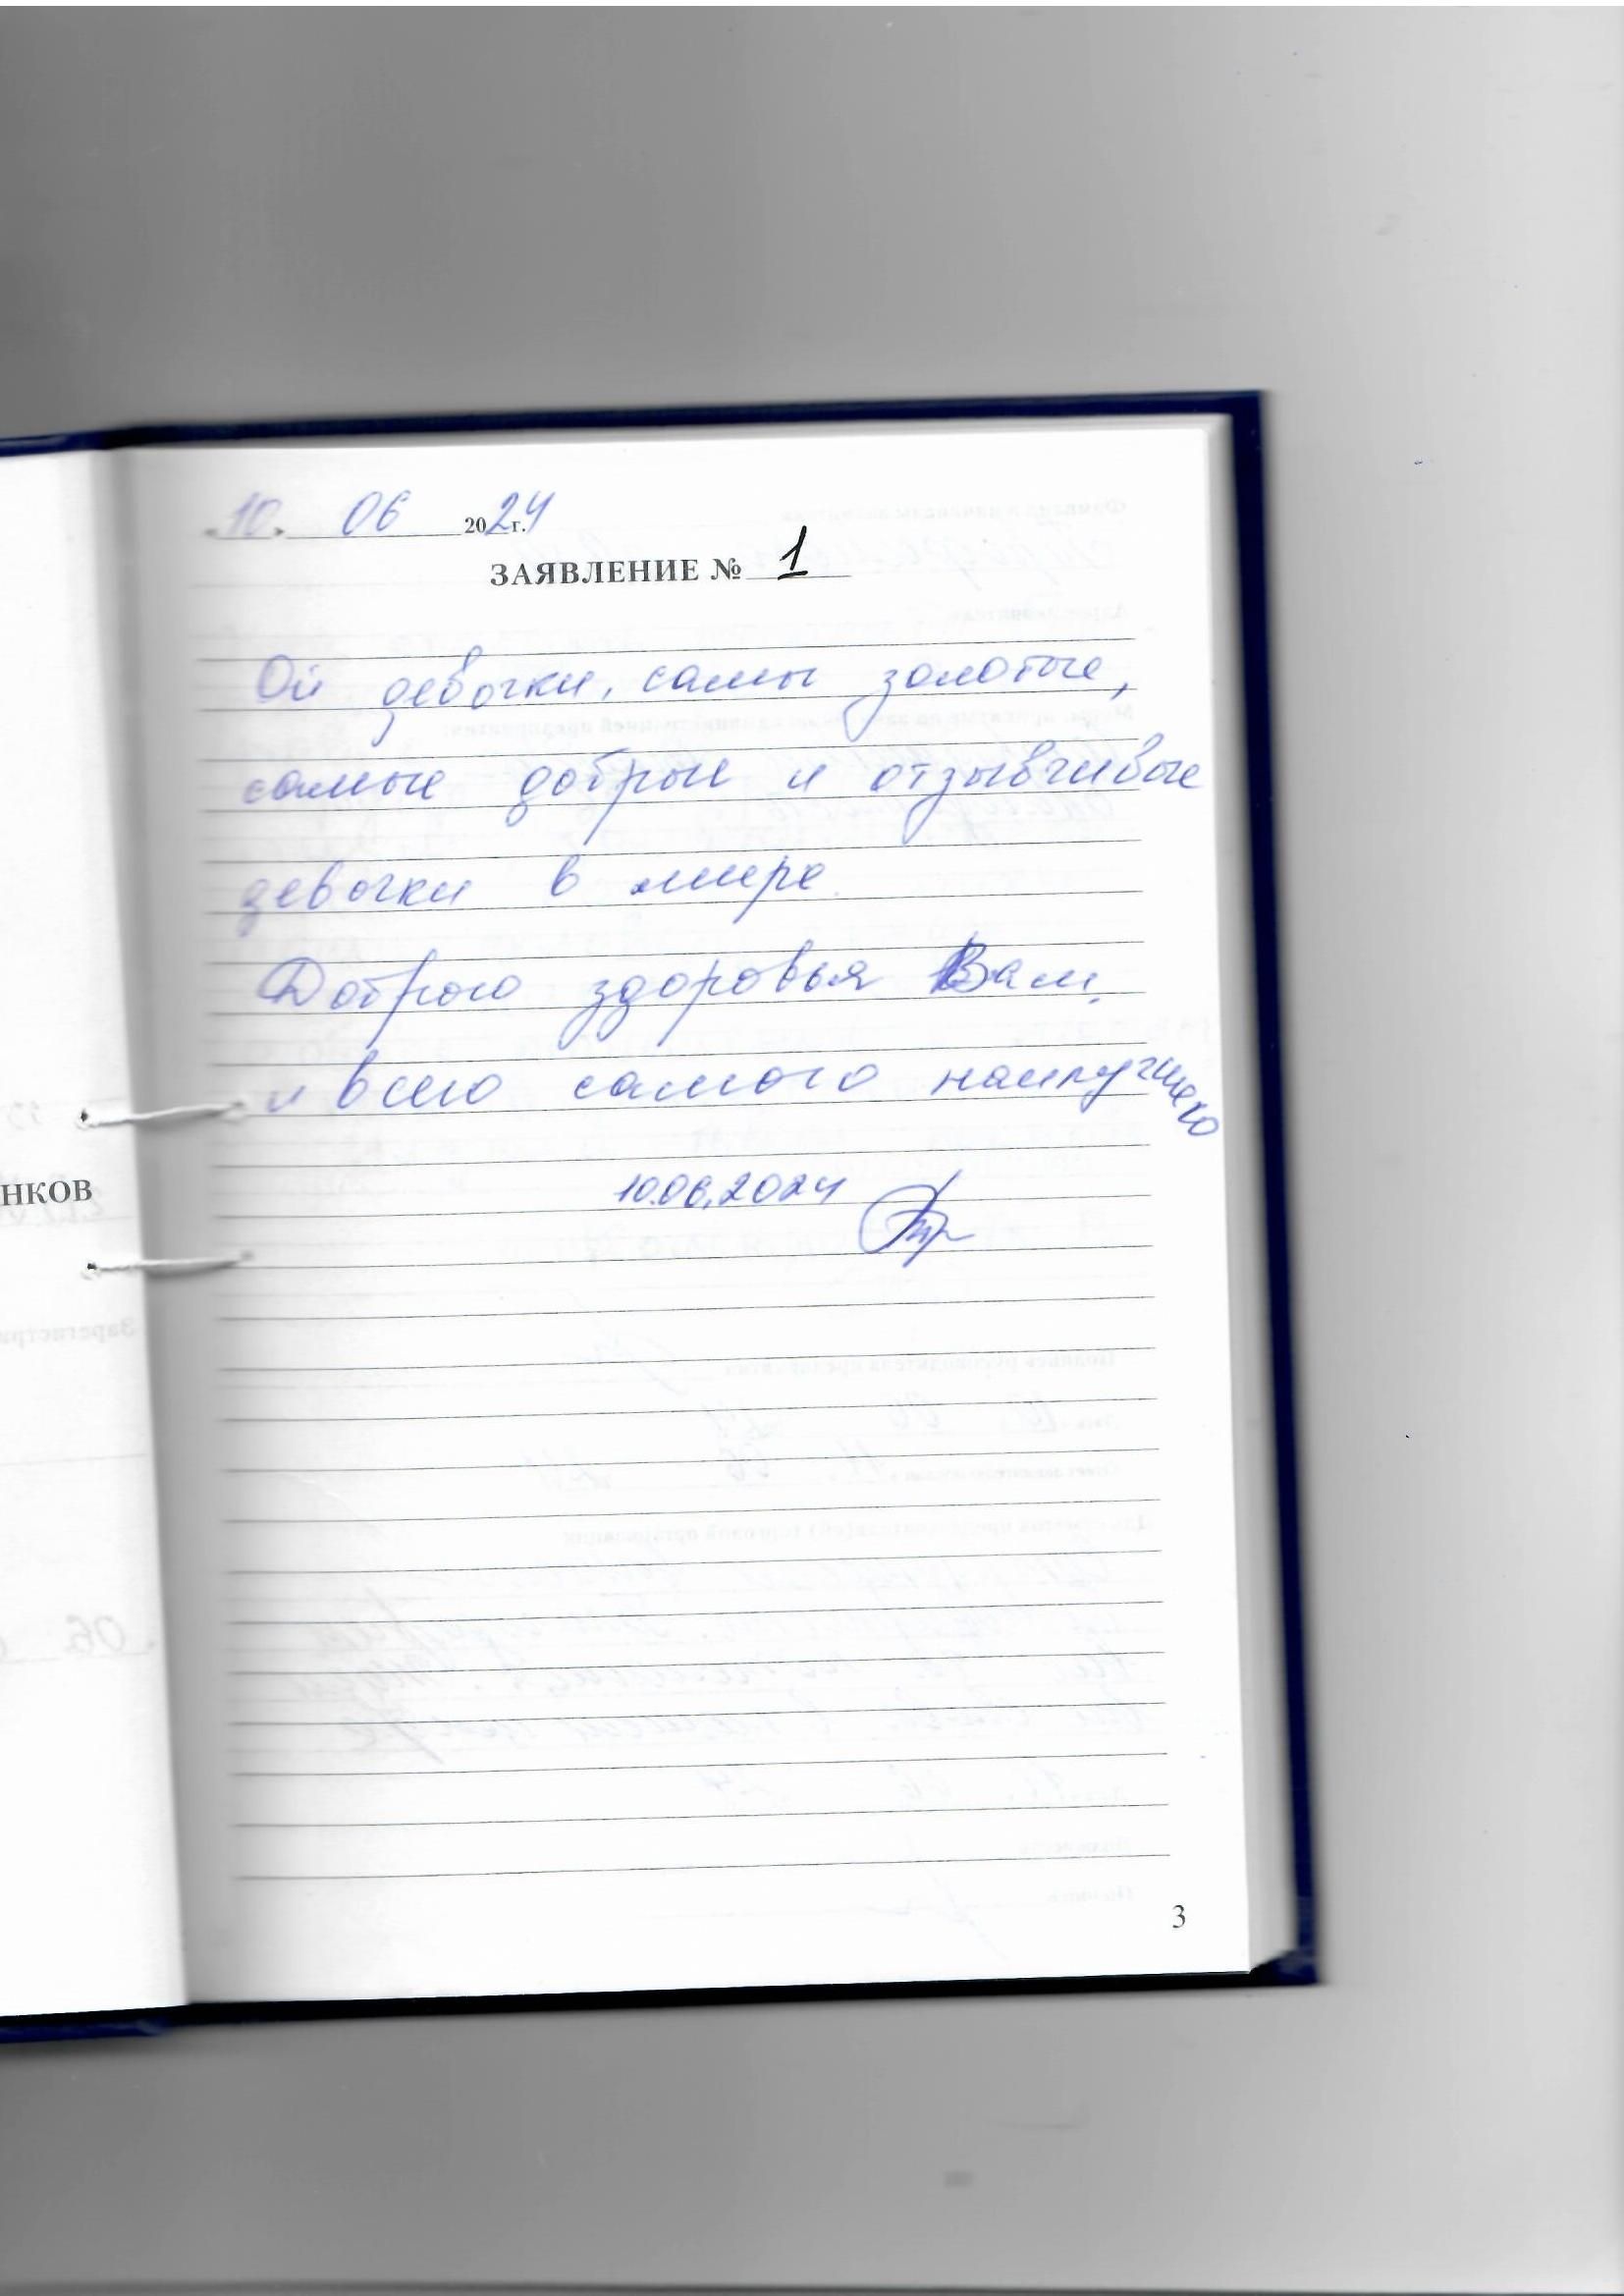 « 10 » 06 2024 г.
ЗАЯВЛЕНИЕ № 1
Ой девочки, самы золотые,
самые добрые и отзывчивые
девочки в мире.
Доброго здоровья Вам,
и всего самого наилучшего
НКОВ
10.06.2024
3